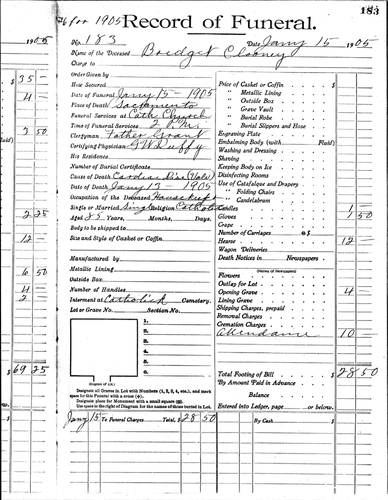 183
76 for 1905 Record of Funeral.
1905
No. 183 Date Jany 15 1905
Name of the Deceased Bridget Clooney
Charge to
Order Given by
How Secured
Date of Funeral Jany 15 - 1905
Place of Death Sacramento
Funeral Services at Cath Church
Time of Funeral Services 2 P.M.
Clergyman Father Grant
Certifying Physician G W Duffy
His Residence
Number of Burial Certificate
Cause of Death Cardiac Dis (Valv)
Date of Death Jany 13 - 1905
Occupation of the Deceased Housekeeper
Single or Married Single Religion Catholic
Aged 85 Years, Months, Days.
Body to be shipped to
Size and Style of Casket or Coffin
Manufactured by
Metallic Lining
Outside Box
Number of Handles
Interment at Catholick Cemetery.
Lot or Grave No. Section No.
1.
2.
3.
4.
5.
6.
(Diagram of Lot)
Designate all Graves in Lot with Numbers (1, 2, 3, 4, etc.), and mark
space for this Funeral with a cross (+).
Designate place for Monument with a small square (□).
Use space to the right of Diagram for the names of those buried in Lot.
Price of Casket or Coffin
" Metallic Lining
" Outside Box
" Grave Vault
" Burial Robe
" Burial Slippers and Hose
Engraving Plate
Embalming Body (with Fluid)
Washing and Dressing
Shaving
Keeping Body on Ice
Disinfecting Rooms
Use of Catafalque and Drapery
" Folding Chairs
" Candelabrum
Candles 1
Gloves 1 50
Crape
Number of Carriages @ $
Hearse 12 -
Wagon Deliveries
Death Notices in Newspapers
(Names of Newspapers)
Flowers
Outlay for Lot
Opening Grave 4
Lining Grave
Shipping Charges, prepaid
Removal Charges
Cremation Charges
Attendance 10 -
Total Footing of Bill $ 28 50
By Amount Paid in Advance
Balance
Entered into Ledger, page or below.
Jany 15 To Funeral Charges Total, $ 28 50 By Cash $
$ 35 -
4 -
3 50
2 25
12 -
6 50
4 -
2
$ 69 25